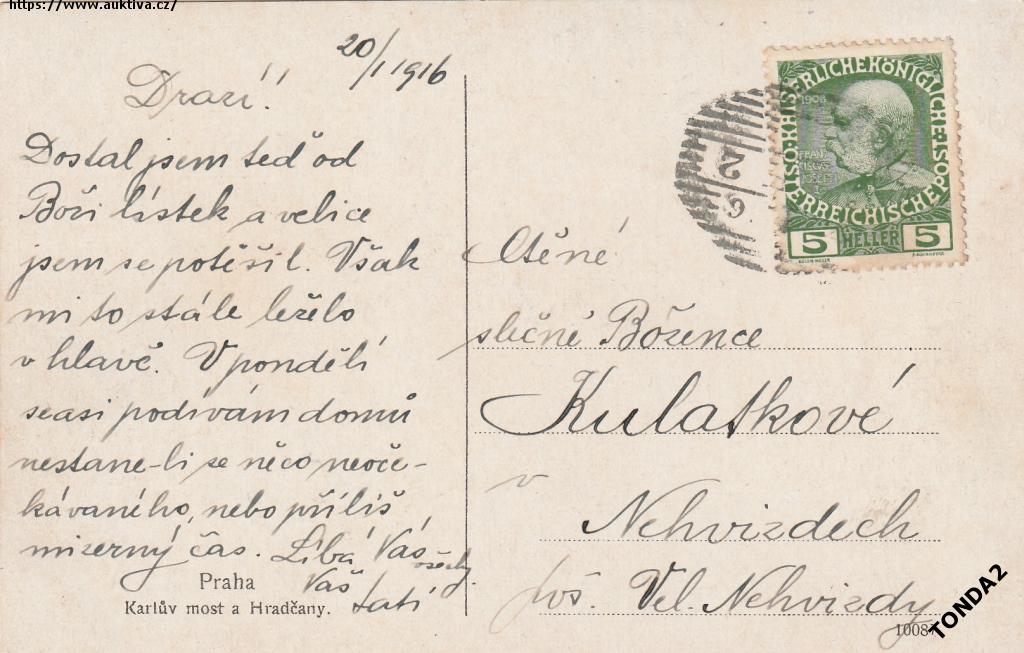 https://www.auktiva.cz/
20/1 1916
Drazí!
Dostal jsem teď od
Boži lístek a velice
jsem se potěšil. Však
mi to stále leželo
v hlavě. V pondělí
seasi podívám domů
nestane-li se něco neoče-
kávaného, nebo příliš
mizerný čas. Líbá Vás
všechny
Váš
tatí
Praha
Karlův most a Hradčany.
KAISERLICHE KÖNIGLICHE
ÖSTERREICHISCHE POST
1908
FRAN
CISCVS
I
5 HELLER 5
Ctěné
slečně Božence
Kulatkové
v
Nehvizdech
poš. Vel. Nehvizdy
10087
TONDA2